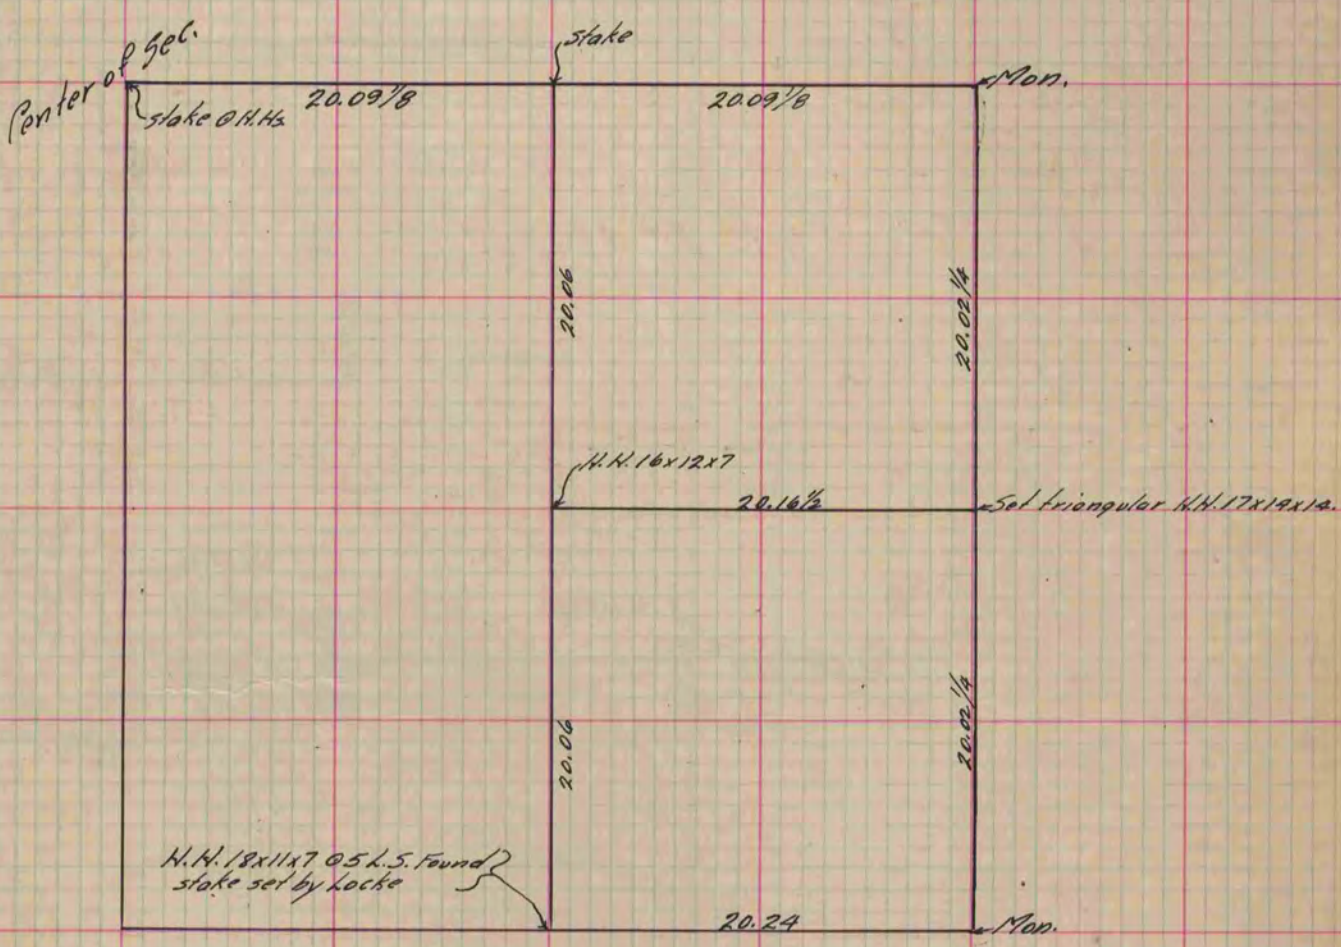 Center of Sec.
Stake
Mon.
20.09 1/8
20.09 1/8
stake @ H.Hs
20.06
20.02 1/4
H.H. 16x12x7
20.16 1/2
Set triangular H.H. 17x14x14.
20.06
20.02 1/4
H.H. 18x11x7 @ 5 L.S. Found
stake set by Locke
20.24
Mon.